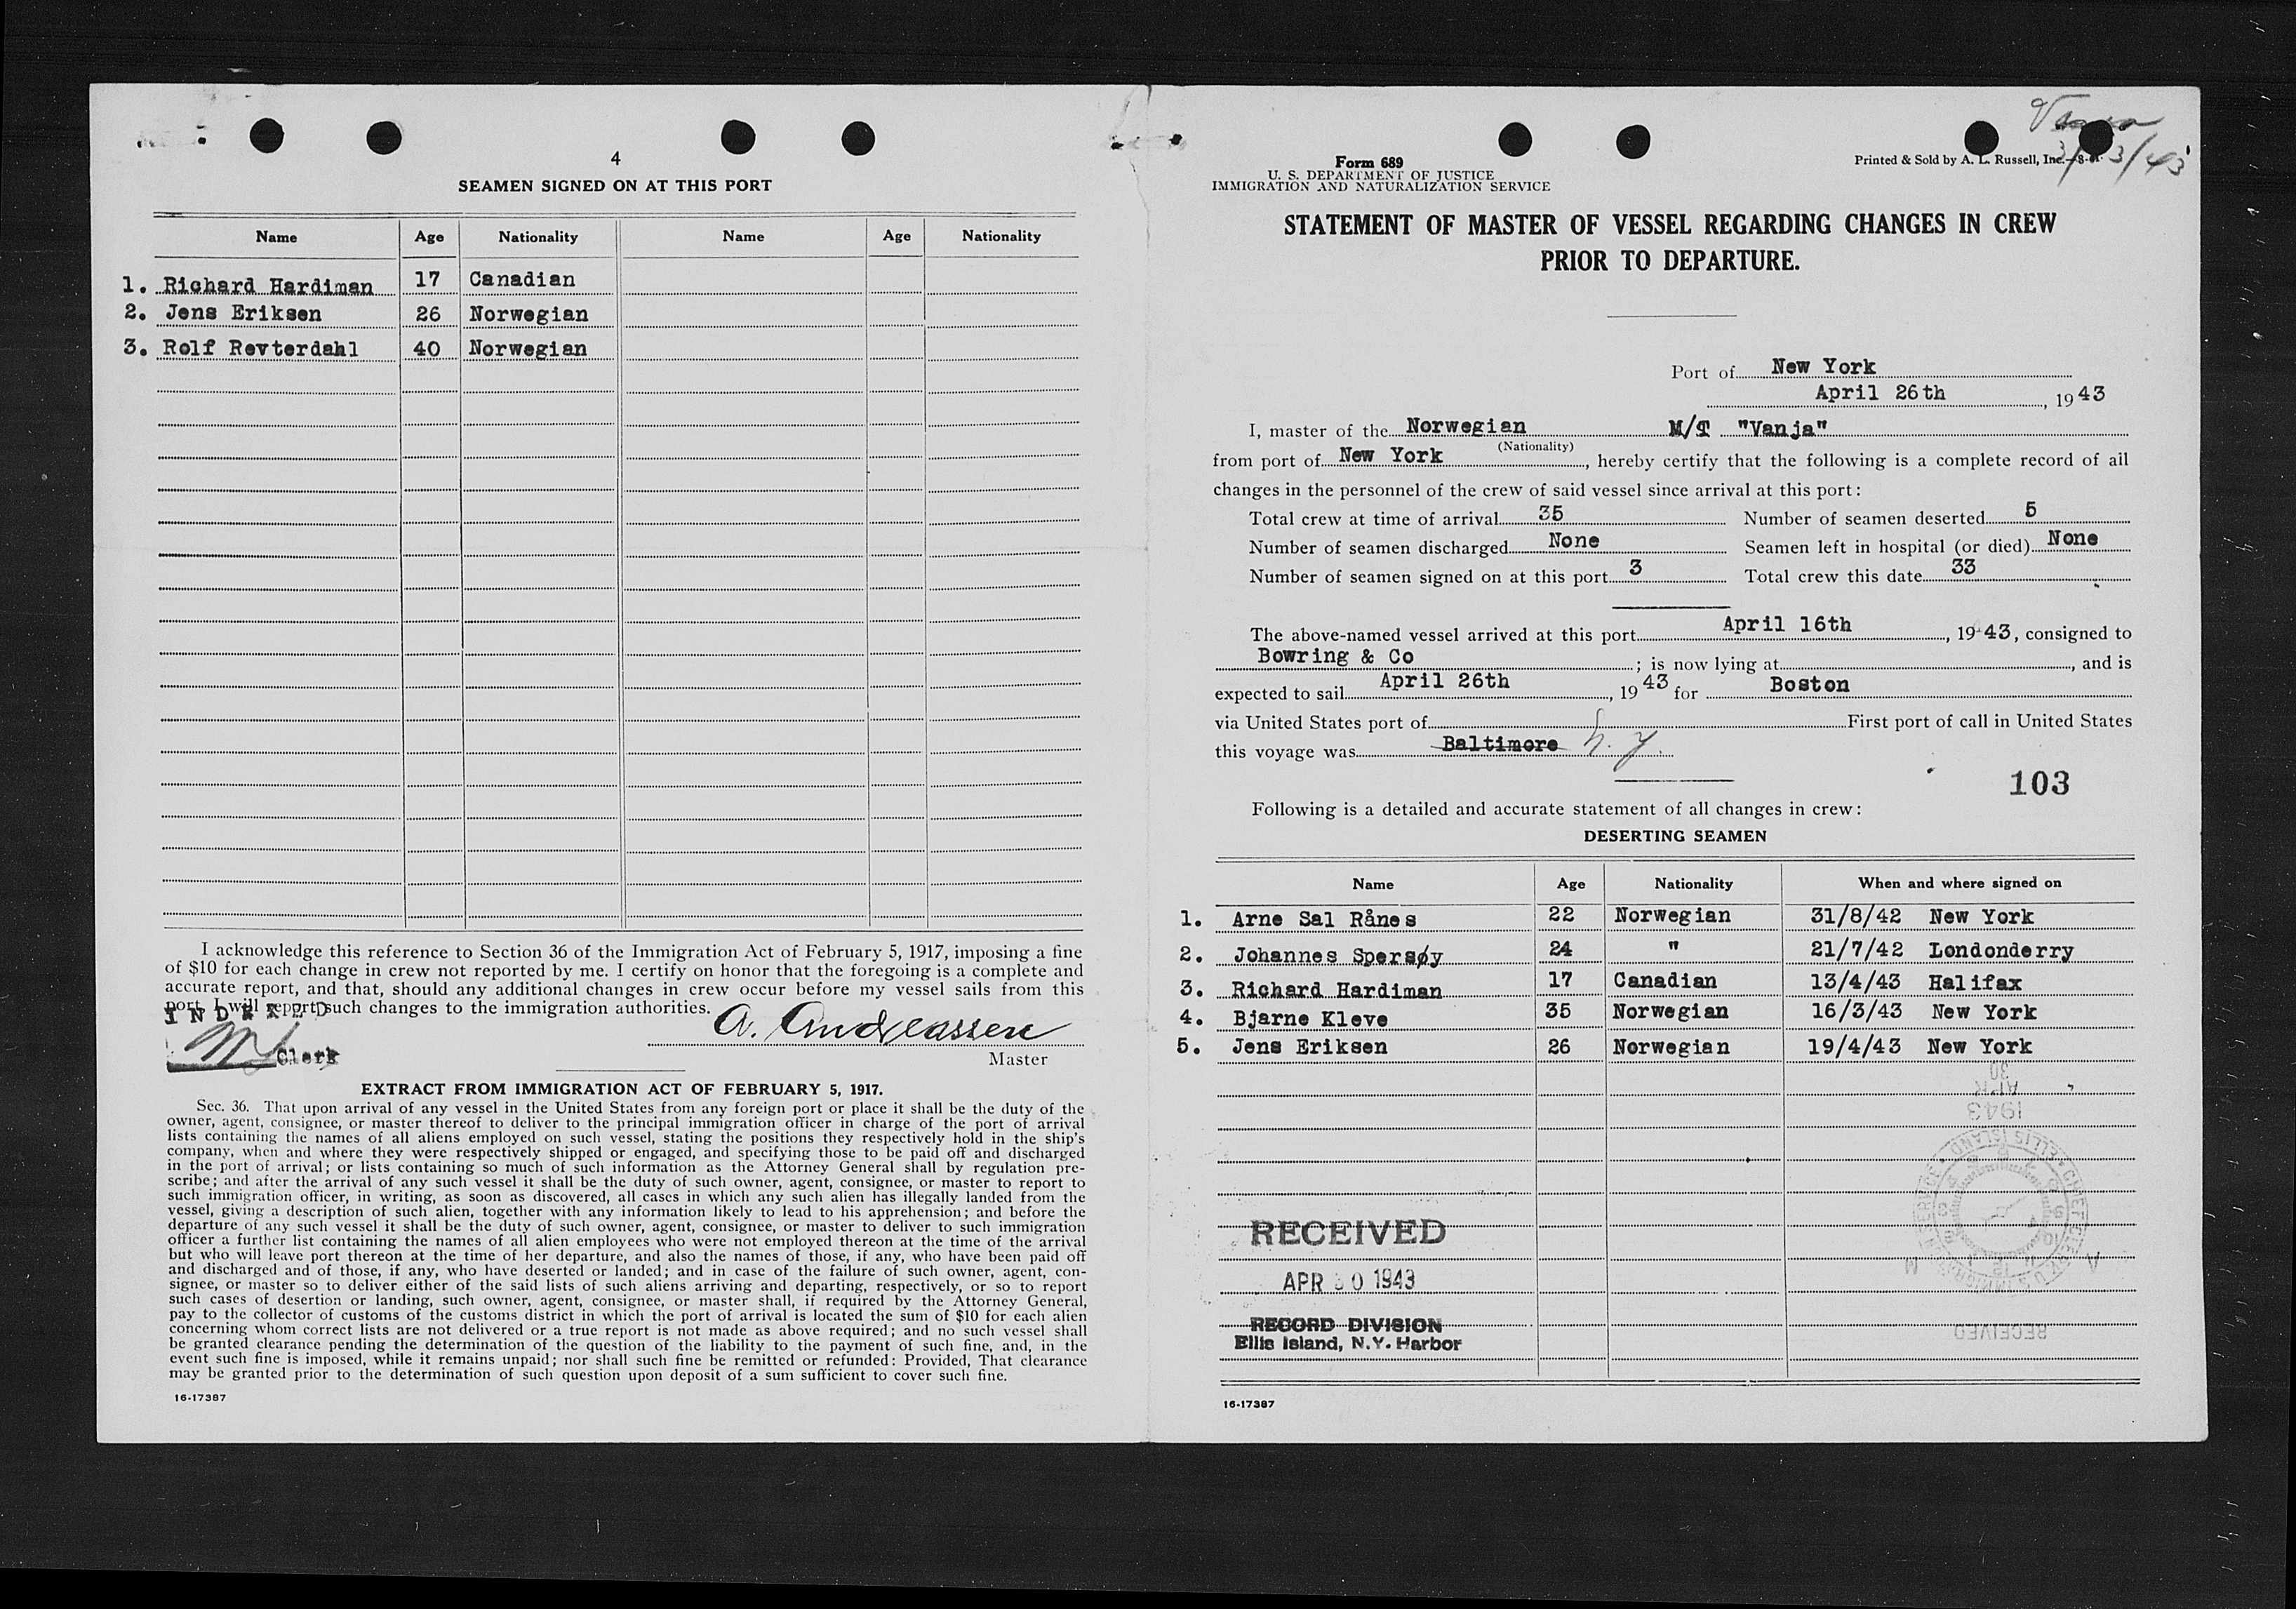 4
SEAMEN SIGNED ON AT THIS PORT
Name Age Nationality Name Age Nationality
1. Richard Hardiman 17 Canadian
2. Jens Eriksen 26 Norwegian
3. Rolf Revterdahl 40 Norwegian
I acknowledge this reference to Section 36 of the Immigration Act of February 5, 1917, imposing a fine
of $10 for each change in crew not reported by me. I certify on honor that the foregoing is a complete and
accurate report, and that, should any additional changes in crew occur before my vessel sails from this
port, I will report such changes to the immigration authorities.
INDEXED
A. Andreassen
Clerk
Master
EXTRACT FROM IMMIGRATION ACT OF FEBRUARY 5, 1917.
Sec. 36. That upon arrival of any vessel in the United States from any foreign port or place it shall be the duty of the
owner, agent, consignee, or master thereof to deliver to the principal immigration officer in charge of the port of arrival
lists containing the names of all aliens employed on such vessel, stating the positions they respectively hold in the ship's
company, when and where they were respectively shipped or engaged, and specifying those to be paid off and discharged
in the port of arrival; or lists containing so much of such information as the Attorney General shall by regulation pre-
scribe; and after the arrival of any such vessel it shall be the duty of such owner, agent, consignee, or master to report to
such immigration officer, in writing, as soon as discovered, all cases in which any such alien has illegally landed from the
vessel, giving a description of such alien, together with any information likely to lead to his apprehension; and before the
departure of any such vessel it shall be the duty of such owner, agent, consignee, or master to deliver to such immigration
officer a further list containing the names of all alien employees who were not employed thereon at the time of the arrival
but who will leave port thereon at the time of her departure, and also the names of those, if any, who have been paid off
and discharged and of those, if any, who have deserted or landed; and in case of the failure of such owner, agent, con-
signee, or master so to deliver either of the said lists of such aliens arriving and departing, respectively, or so to report
such cases of desertion or landing, such owner, agent, consignee, or master shall, if required by the Attorney General,
pay to the collector of customs of the customs district in which the port of arrival is located the sum of $10 for each alien
concerning whom correct lists are not delivered or a true report is not made as above required; and no such vessel shall
be granted clearance pending the determination of the question of the liability to the payment of such fine, and, in the
event such fine is imposed, while it remains unpaid; nor shall such fine be remitted or refunded: Provided, That clearance
may be granted prior to the determination of such question upon deposit of a sum sufficient to cover such fine.
16-17387
Form 689
U. S. DEPARTMENT OF JUSTICE
IMMIGRATION AND NATURALIZATION SERVICE
Printed & Sold by A. L. Russell, Inc.
STATEMENT OF MASTER OF VESSEL REGARDING CHANGES IN CREW
PRIOR TO DEPARTURE.
Port of New York
April 26th, 1943
I, master of the Norwegian M/T "Vanja"
(Nationality)
from port of New York, hereby certify that the following is a complete record of all
changes in the personnel of the crew of said vessel since arrival at this port:
Total crew at time of arrival 35 Number of seamen deserted 5
Number of seamen discharged None Seamen left in hospital (or died) None
Number of seamen signed on at this port 3 Total crew this date 33
The above-named vessel arrived at this port April 16th, 1943, consigned to
Bowring & Co; is now lying at, and is
expected to sail April 26th, 1943 for Boston
via United States port of First port of call in United States
this voyage was Baltimore N. Y.
103
Following is a detailed and accurate statement of all changes in crew:
DESERTING SEAMEN
Name Age Nationality When and where signed on
1. Arne Sal Rånes 22 Norwegian 31/8/42 New York
2. Johannes Spersøy 24 " 21/7/42 Londonderry
3. Richard Hardiman 17 Canadian 13/4/43 Halifax
4. Bjarne Kleve 35 Norwegian 16/3/43 New York
5. Jens Eriksen 26 Norwegian 19/4/43 New York
APR 30
1943
RECEIVED
APR 30 1943
RECORD DIVISION
Ellis Island, N.Y. Harbor
RECEIVED
16-17387